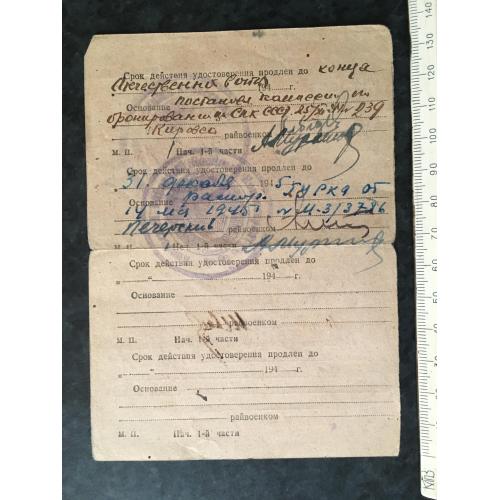 Срок действия удостоверения продлен до конца
Отечественной войны 194 г.
Основание постанов. комиссии по
бронированию СНК СССР 239
Кировск райвоенком
М. П. Нач. 1-й части
Срок действия удостоверения продлен до
31 декабря 1945
Основание распор. ГУРКА от
14 мая 1945 г. № М-3/3786
Печерский райвоенком
М. П. Нач. 1-й части
Срок действия удостоверения продлен до
„ “ 194 г.
Основание
райвоенком
М. П. Нач. 1-й части
Срок действия удостоверения продлен до
„ “ 194 г.
Основание
райвоенком
М. П. Нач. 1-й части
140
130
120
110
100
90
80
70
60
50
40
30
20
10